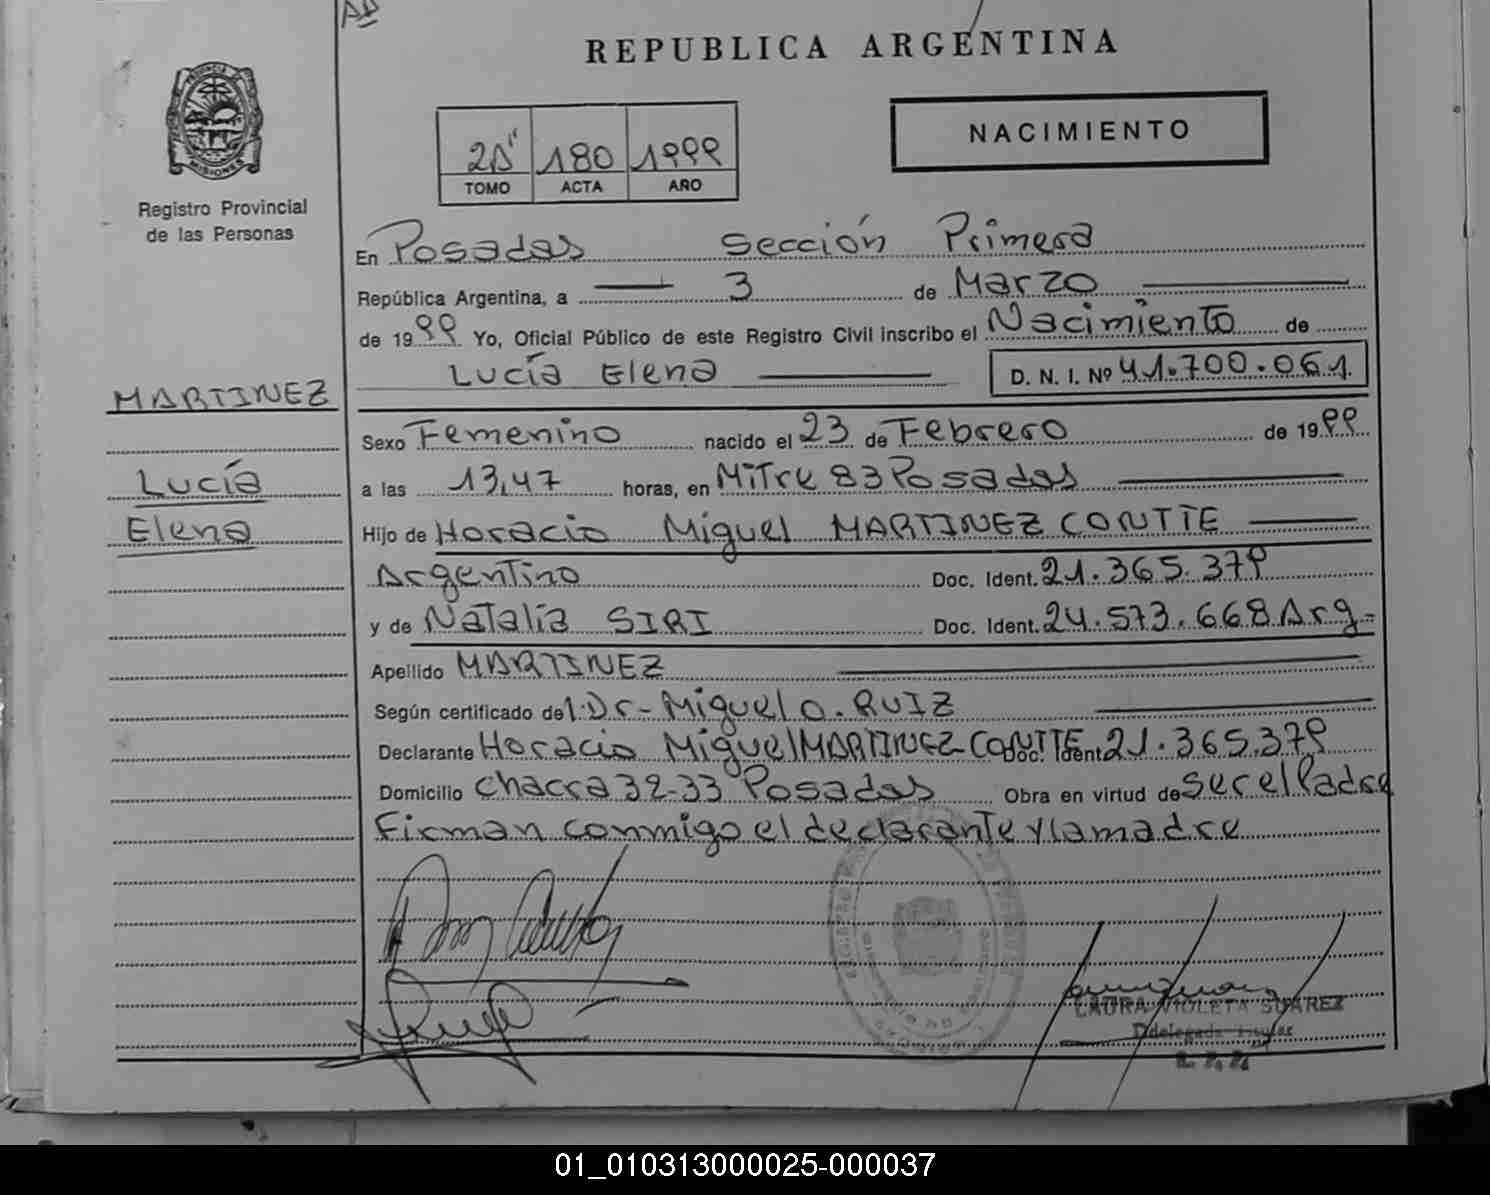 REPUBLICA ARGENTINA
NACIMIENTO
180 1999
TOMO ACTA AÑO
Registro Provincial
de las Personas
En Posadas Sección Primera
República Argentina, a 3 de Marzo
de 1999 Yo, Oficial Público de este Registro Civil inscribo el Nacimiento de
Lucía Elena D. N. I. Nº 41.700.061
MARTINEZ
Sexo Femenino nacido el 23 de Febrero de 1999
Lucía
a las 13,47 horas, en Mitre 83 Posadas
Elena
Hijo de Horacio Miguel MARTINEZ CONTTE
Argentino Doc. Ident. 21.365.379
y de Natalia SIRI Doc. Ident. 24.573.668 Arg-
Apellido MARTINEZ
Según certificado del Dr- Miguel O. RUIZ
Declarante Horacio Miguel MARTINEZ CONTTE Doc. Ident 21.365.379
Domicilio Chacra 32-33 Posadas Obra en virtud de ser el Padre
Firman conmigo el declarante y la madre
LAURA VIOLETA SUAREZ
Delegada Titular
01_010313000025-000037